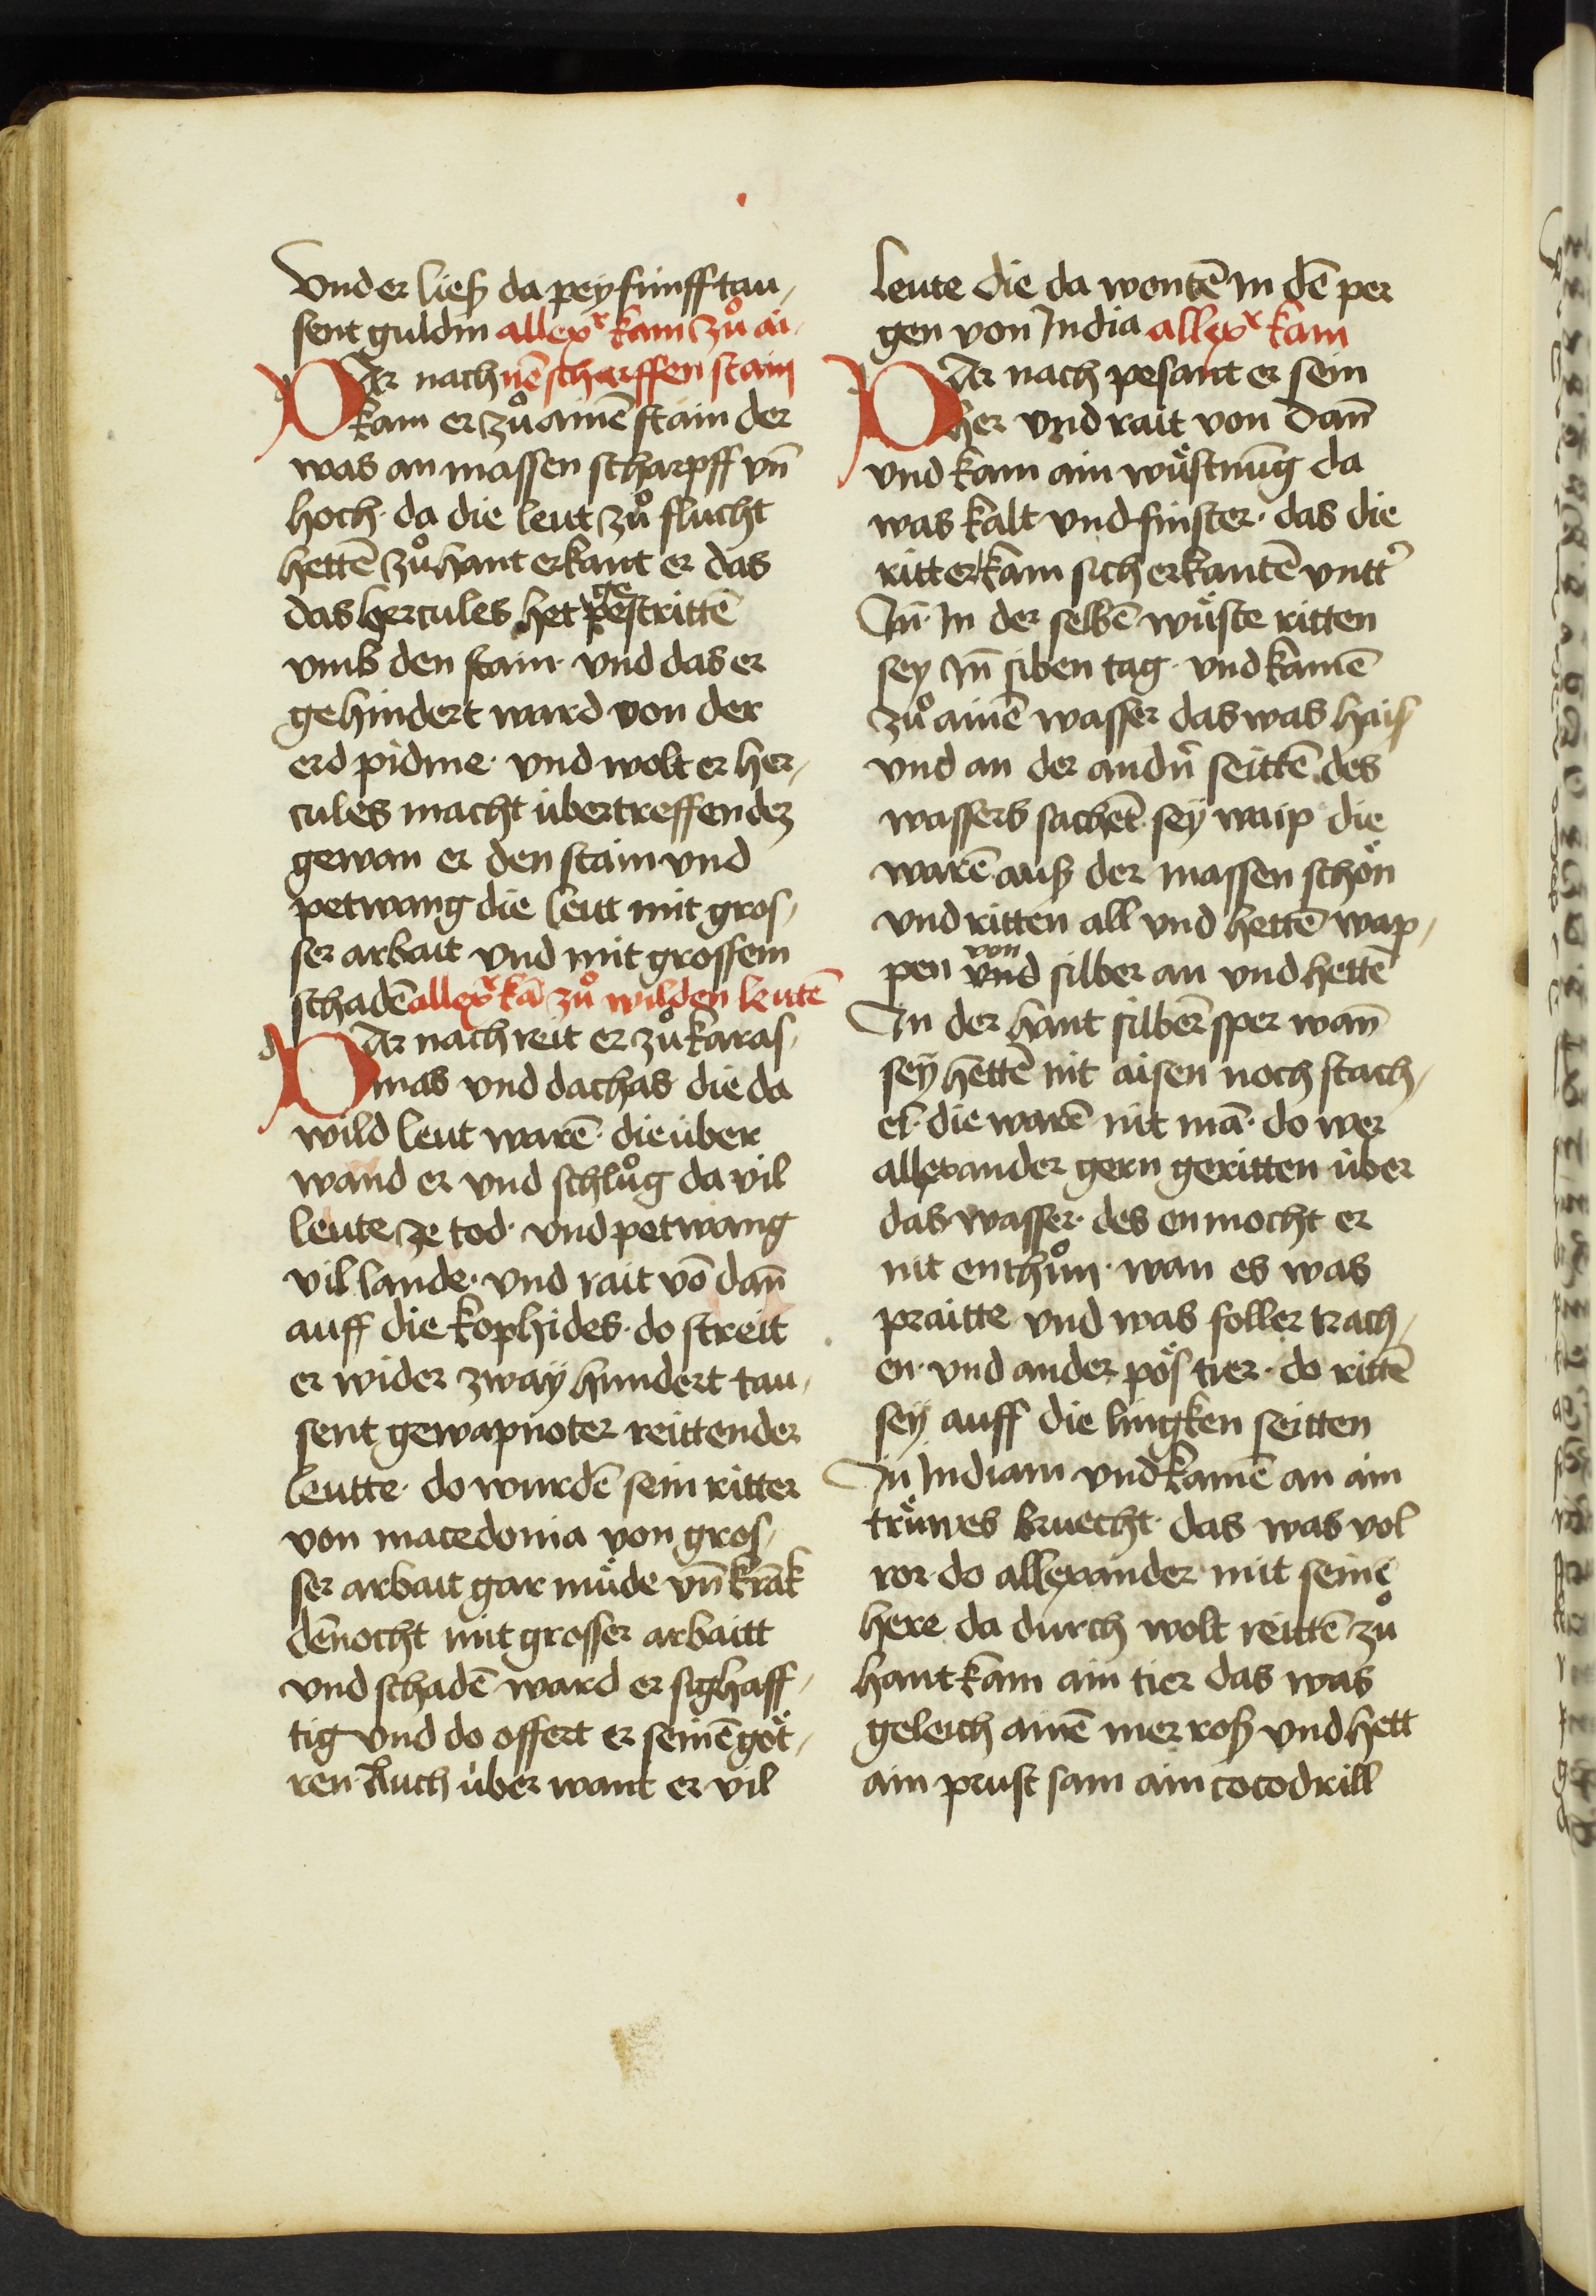 Vnd er ließ da pey fünff tau,
sent guldin allexr kam zuͦ ai-
DAr nach nē scharffen stain
kam er zuͦ ainē stain der
was an massen scharpff vn̄
hoch · da die leut zuͦ flucht
hettē zuͦ hant erkant er das
das hercules het ge pestrittē
vmb den stain · vnd das er
gehindert ward von der
erd pidme · vnd wolt er her,
cules macht übertreffen dez
gewan er den stain vnd
petwang die leut mit gros,
ser arbait vnd mit grossem
schadē allexr kā zuͦ wilden leutē
DAr nach reit er zuͦ karas,
mas vnd dachas die da
wild leut warē · die über
wand er vnd schluͦg da vil
leute ze tod · vnd petwang
vil lande · vnd rait vō dan̄
auff die kophides · do streit
er wider zwaÿ hundert tau,
sent gewapnoter reittender
leutte · do wurdē sein ritter
von macedonia von gros,
ser arbait gar müde vn̄ krāk
dēnocht mit grosser arbaitt
vnd schadē ward er sighaff,
tig vnd do offert er seinē göt,
ren · Auch über want er vil
leute die da wontē in dē per
gen von India allexr kam
DAr nach pesant er sein
her vnd rait von dan̄
vnd kam ain wüstnūg da
was kalt vnd finster · das die
ritter kam sich erkantē vntt̾
In̄ · In der selbē wüste ritten
sey In̄ siben tag · vnd kamē
zuͦ ainē wasser das was haiß
vnd an der andn̄ seittē des
wassers sachēt sÿ waip die
warē auß der massen schön
vnd ritten all vnd hettē wap,
pen von vnd silber an vnd hettē
In der hant silberē sper wan̄
seÿ hettē nit aisen noch stach,
el · die warē nit mā · do wer
allexander gern geritten über
das wasser · des en mocht er
nit enthuͦn · wan es was
praitte vnd was foller trach,
en · vnd ander pös tier · do rittē
seÿ auff die lingken seitten
In Indiam vnd kamē an ain
trüwes bruecht · das was vol
ror · do allexander mit seinē
here da durch wolt reittē zuͦ
hant kam ain tier das was
geleich ainē mer roß vnd hett
ain prust sam ain cocodrill